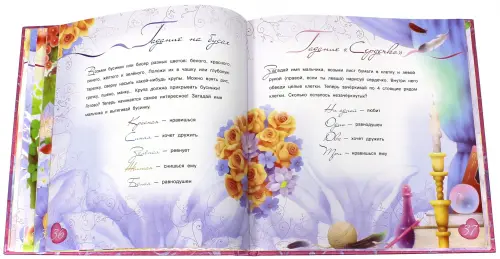 Гадание на бусах
Возьми бусинки или бисер разных цветов: белого, красного,
синего, жёлтого и зелёного. Положи их в чашку или глубокую
тарелку, сверху насыпь какой-нибудь крупы. Можно взять рис,
гречку, пшено, манку. Крупа должна прикрывать бусинки!
Готово? Теперь начинается самое интересное! Загадай имя
мальчика и вытягивай бусинку.
Красная — нравишься
Синяя — хочет дружить
Зелёная — ревнует
Жёлтая — снишься ему
Белая — равнодушен
36
Гадание «Сердечко»
Загадай имя мальчика, возьми лист бумаги в клетку и левой
рукой (правой, если ты левша) нарисуй сердечко. Внутри него
обведи целые клетки. Теперь зачёркивай по 4 стоящие рядом
клетки. Сколько осталось незачёркнутых?
Ни одной — любит
Одна — равнодушен
Две — хочет дружить
Три — нравишься ему
37